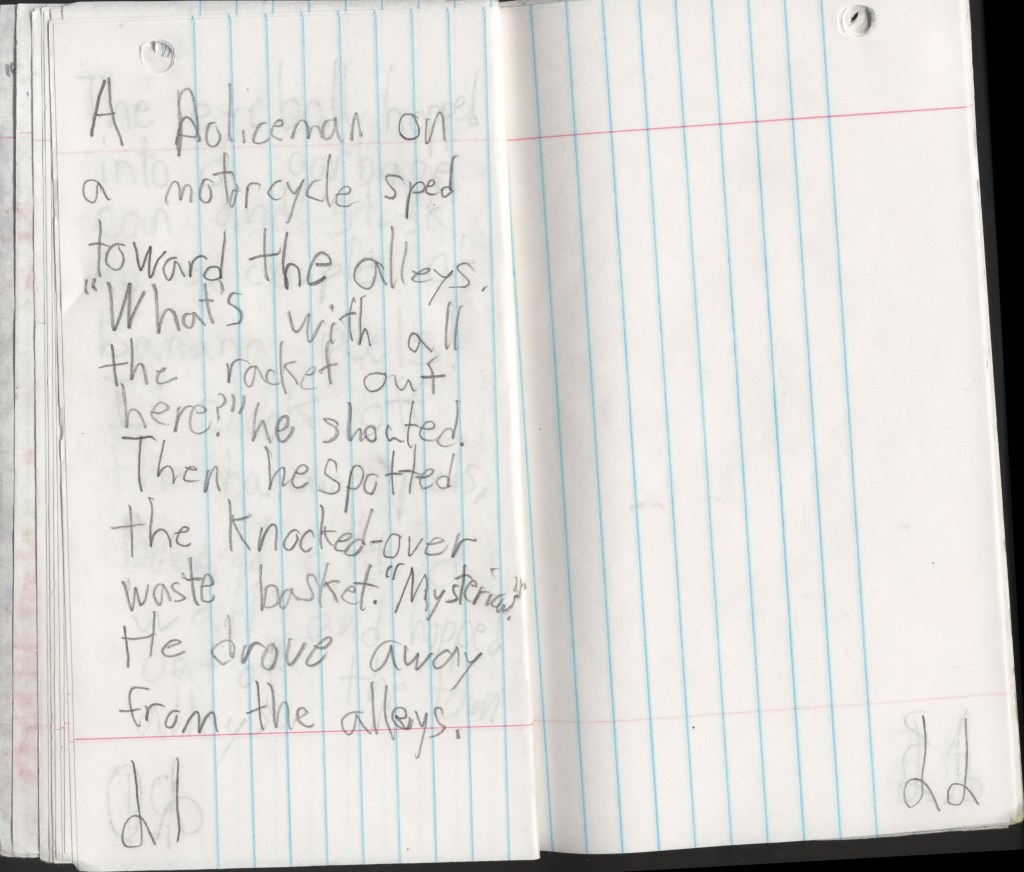 A Policeman on
a motorcycle sped
toward the alleys.
"What's with all
the racket out
here?" he shouted.
Then he spotted
the knocked-over
waste basket. "Mysterious."
He drove away
from the alleys.
21
22